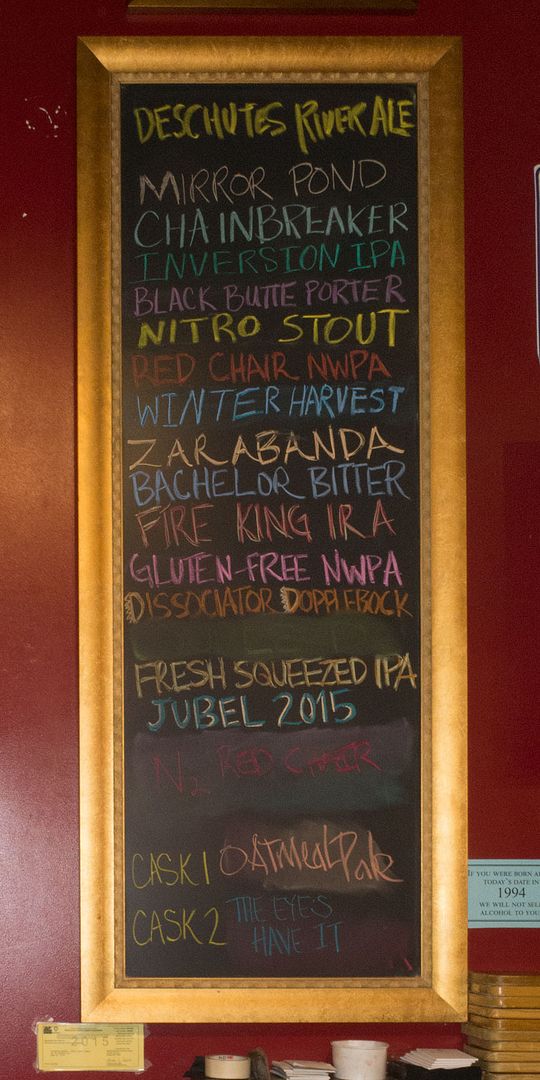 DESCHUTES RIVER ALE
MIRROR POND
CHAINBREAKER
INVERSION IPA
BLACK BUTTE PORTER
NITRO STOUT
RED CHAIR NWPA
WINTER HARVEST
ZARABANDA
BACHELOR BITTER
FIRE KING IRA
GLUTEN-FREE NWPA
DISSOCIATOR DOPPLEBOCK
FRESH SQUEEZED IPA
JUBEL 2015
N2 RED CHAIR
CASK 1 OATMEAL Pale
CASK 2 THE EYE'S
HAVE IT
IF YOU WERE BORN
TODAY'S DATE IN
1994
WE WILL NOT
ALCOHOL TO
2015